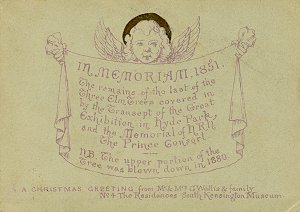 IN MEMORIAM. 1851.
The remains of the last of the
Three Elm Trees covered in
by the Transept of the Great
Exhibition in Hyde Park,
and the Memorial of H.R.H.
The Prince Consort.
N.B. The upper portion of the
Tree was blown down in 1880.
A CHRISTMAS GREETING from Mr & Mrs G. Wallis & family
No 4 The Residences South Kensington Museum